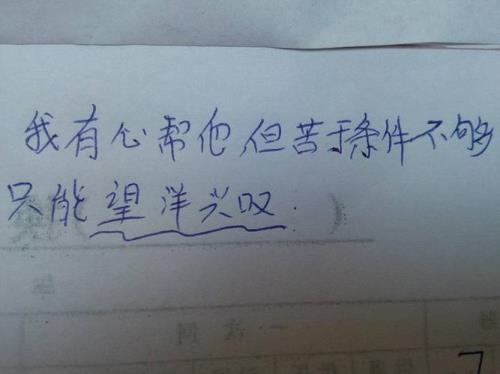 我有心帮他,但苦于条件不够
只能望洋兴叹.